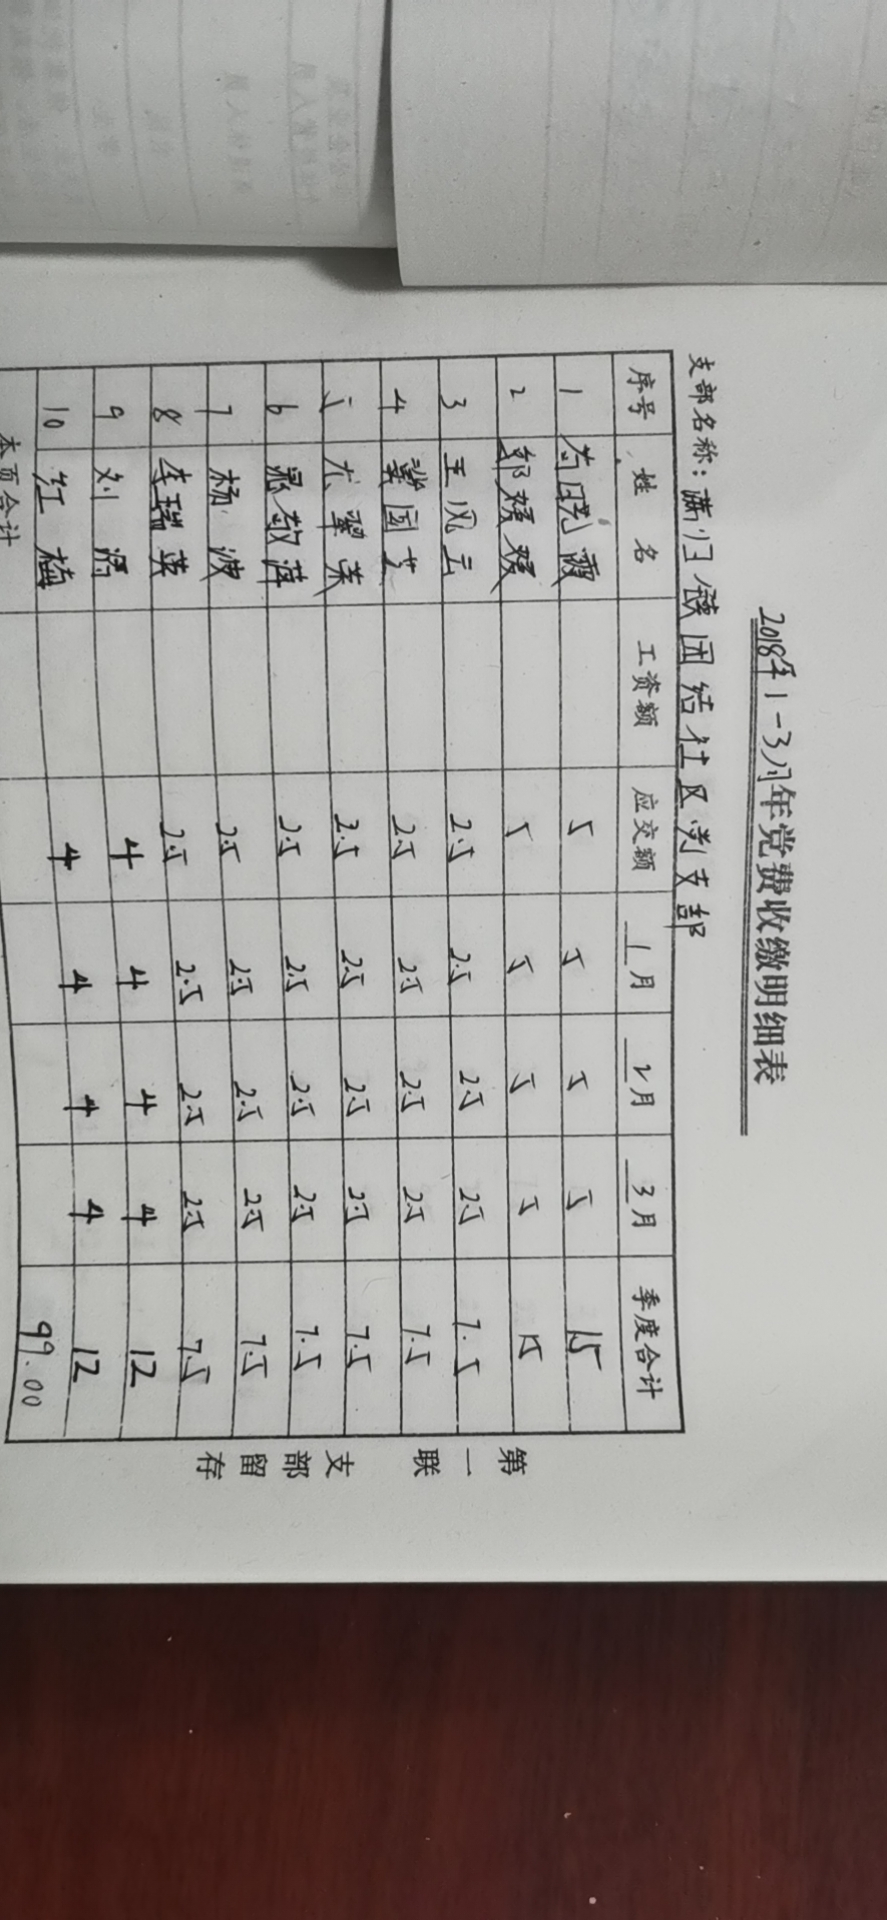 2018年1-3月年党费收缴明细表
支部名称：满归镇团结社区党支部
序号 姓名 工资额 应交额 1月 2月 3月 季度合计
1 苟晓霞 5 5 5 5 15
2 郭媛媛 5 5 5 5 15
3 王凤云 2.5 2.5 2.5 2.5 7.5
4 国芝 2.5 2.5 2.5 2.5 7.5
5 尤翠荣 2.5 2.5 2.5 2.5 7.5
6 敬萍 2.5 2.5 2.5 2.5 7.5
7 杨波 2.5 2.5 2.5 2.5 7.5
8 李瑞英 2.5 2.5 2.5 2.5 7.5
9 刘 4 4 4 4 12
10 红梅 4 4 4 4 12
本页合计 99.00
第一联 支部留存